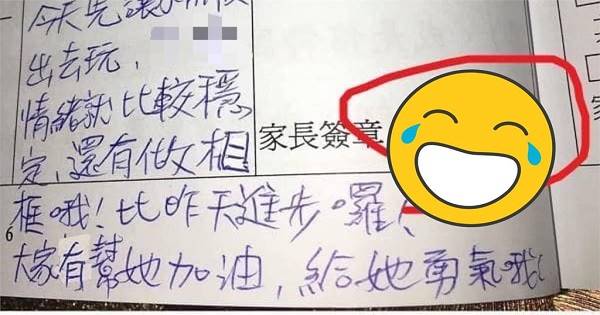 今天先讓
出去玩，
情緒就比較穩
定，還有做相
家長簽章
框哦！比昨天進步囉！
6
大家有幫她加油，給她勇氣哦！